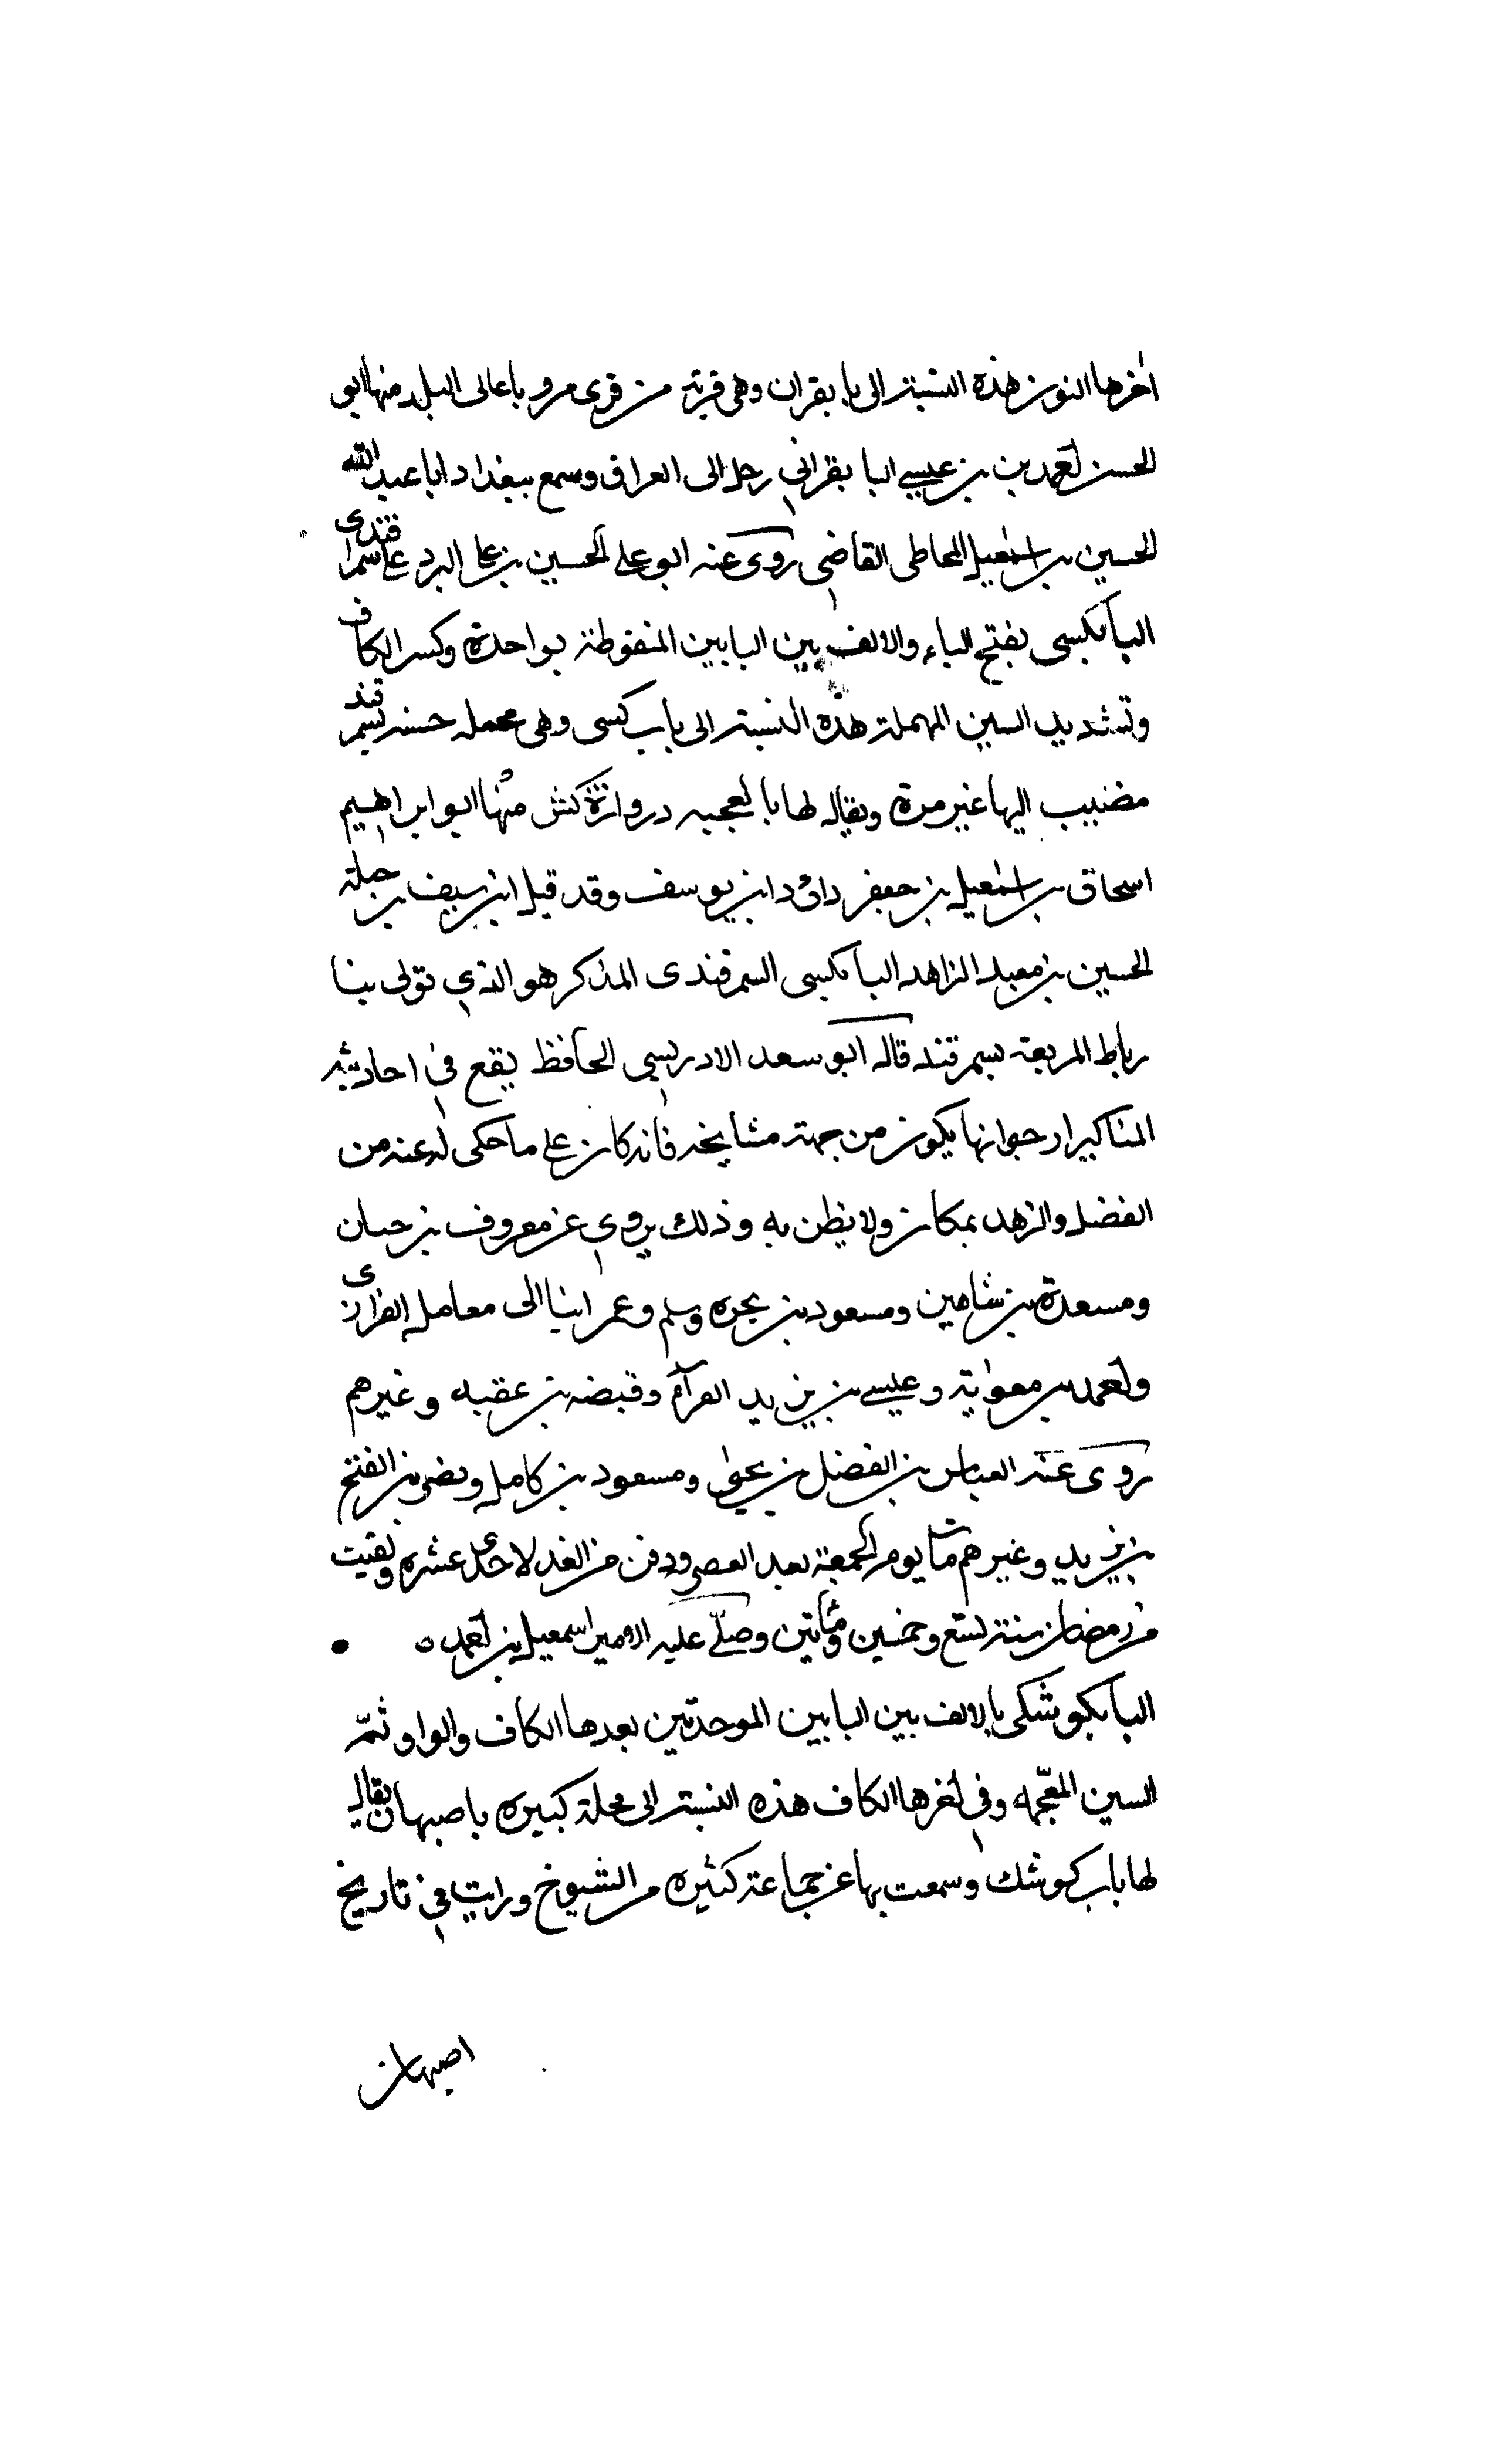 اخرها النون هذه النسبة الى بابقران وهى قرية من قرى مرو باعالى البلد منها ابو
الحسن احمد بن بن عيسى البابقرانى رحل الى العراق وسمع ببغداد ابا عبد الله
الحسين بن اسمعيل المحاملى القاضى روى عنه ابو على الحسين بن على البردعى السمرقندى
البابكسى بفتح الباء والالف بين البابين المنقوطة بواحدة وكسر الكاف
وتشديد السين المهملة هذه النسبة الى باب كسى وهى محله حسنه بسمرقند
اليها غير مرة ويقال لها بالعجميه دروازة كش منها ابو ابراهيم
اسحاق بن اسمعيل بن جعفر داود ابن يوسف وقد قيل ابن سيف بن جبلة
الحسين بن معبد الزاهد البابكسى السمرقندى المذكر هو الذى تولى بنا
رباط المربعة بسمرقند قاله ابو سعد الادريسى الحافظ يقع فى احاديثه
المناكير ارجوا انها يكون من جهة مشايخه فانه كان على ما حكى له عنه من
الفضل والزهد بمكان ولا يظن به وذلك يروى عن معروف بن حسان
ومسعدة بن شاهين ومسعود بن بحره وسلم وعمر ابنا الى معامله الفزارى
واحمد بن معوية وعيسى بن يزيد الفرآم وقبضه بن عقبه وغيرهم
روى عنه العباس بن الفضل بن يحيى ومسعود بن كامل ونصر بن الفتح
بن يزيد وغيرهم مات يوم الجمعة بعد العصر ودفن من الغد لاحدى عشره وبقيت
من رمضان سنة تسع وخمسين ومأتين وصلّى عليه الامير اسمعيل بن احمد ه
البابكوشكى بالالف بين البابين الموحدتين بعدها الكاف والواو ثمّ
السين المعجّمه وفى اخرها الكاف هذه النسبة الى محلة كبيره باصبهان يقال
لها باب كوشك وسمعت بها عن جماعة كثيره من الشيوخ ورايت فى تاريخ
اصبهان